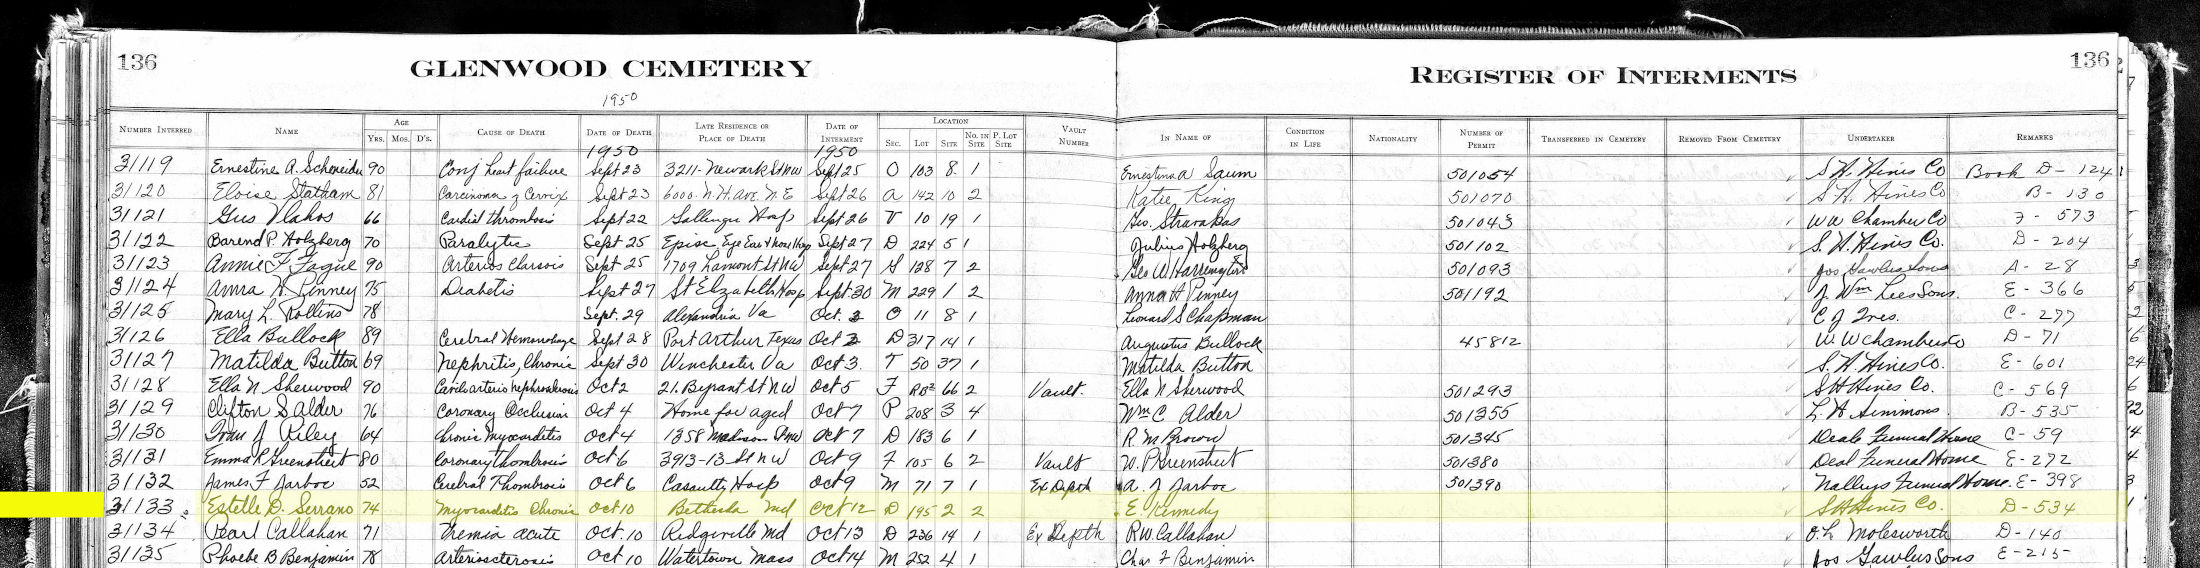 136 GLENWOOD CEMETERY REGISTER OF INTERMENTS 136
1950
NUMBER INTERRED NAME AGE YRS. MOS. D'S. CAUSE OF DEATH DATE OF DEATH LATE RESIDENCE OR PLACE OF DEATH DATE OF INTERMENT LOCATION SEC. LOT SITE NO. IN SITE P. LOT SITE VAULT NUMBER IN NAME OF CONDITION IN LIFE NATIONALITY NUMBER OF PERMIT TRANSFERRED IN CEMETERY REMOVED FROM CEMETERY UNDERTAKER REMARKS
1950 1950
31119 Ernestine A. Schneider 90 Conj heart failure Sept 23 3211-Newark St NW Sept 25 O 103 8 1 Ernestina A Saum 501054 S. H. Hines Co Book D-124
31120 Eloise Statham 81 Carcinoma of Cervix Sept 23 6000 N.H. Ave. N.E Sept 26 A 142 10 2 Katie King 501070 S. H. Hines Co B-130
31121 Gus Vlahos 66 thrombosis Sept 22 Gallinger Hosp Sept 26 10 19 1 Geo. Stravakas 501043 W W Chambers Co 573
31122 Barend P. Holzberg 70 Sept 25 Episc Eye Ear + Hosp Sept 27 D 224 5 1 Julius Holzberg 501102 S. H. Hines Co. D-204
31123 Annie F 90 Sept 25 1709 Lamont St NW Sept 27 128 7 2 Geo W Harrington 501093 Jos Gawlus Sons A-28
31124 Anna H Penney 75 Diabetis Sept 27 St Elzabeth Hosp Sept. 30 M 229 1 2 Anna H Penney 501192 J. Wm Lees Sons. E-366
31125 Mary L. Rollins 78 Sept. 29 Alexandria Va Oct. 2 O 11 8 1 Leonard S Chapman C-277
31126 Ella Bullock 89 Cerebral Hemorrhage Sept 28 Port Arthur Texas Oct 2 D 317 14 1 Augustus Bullock 45812 W. W Chambers Co D-71
31127 Matilda Button 69 Nephritis, Chronic Sept 30 Winchester Va Oct 3. T 50 37 1 Matilda Button S. H. Hines Co. E-601
31128 Ella N Sherwood 90 Oct 2 21. Bryant St NW Oct 5 F 66 2 Vault. Ella N Sherwood 501293 S H Hines Co. C-569
31129 Clifton S Alder 76 Coronary Occlusion Oct 4 Home for aged Oct 7 P 208 3 4 Wm C Alder 501355 L. H. Simmons. B-535
31130 J Riley 64 Chronic Myocarditis Oct 4 1358 Madison St NW Oct 7 D 183 6 1 R. M Brown 501345 Deals Funeral Home C-59
31131 Emma P Greenstreet 80 Coronary Thombrosis Oct 6 3913-13-St NW Oct 9 F 105 6 2 Vault W. P Greenstreet 501380 Deal Funeral Home E-272
31132 James F Jarboe 52 Cerebral Thombrosis Oct 6 Casualty Hosp Oct 9 M 71 7 1 Ex Depth A. J Jarboe 501390 Nalleys Funeral Home. E-398
31133 Estelle D. Serrano 74 Myocarditis Chronic Oct 10 Bethesda Md Oct 12 D 195 2 2 E. Kennedy S H Hines Co. D-534
31134 Pearl Callahan 71 Uremia acute Oct. 10 Ridgeville Md Oct 13 D 236 14 1 Ex Depth R W Callahan O. L Molesworth D-140
31135 Phoebe B Benjamin 78 Arteriosclerosis Oct 10 Watertown Mass Oct 14 M 252 4 1 Chas F Benjamin Jos Gawlus Sons E-215